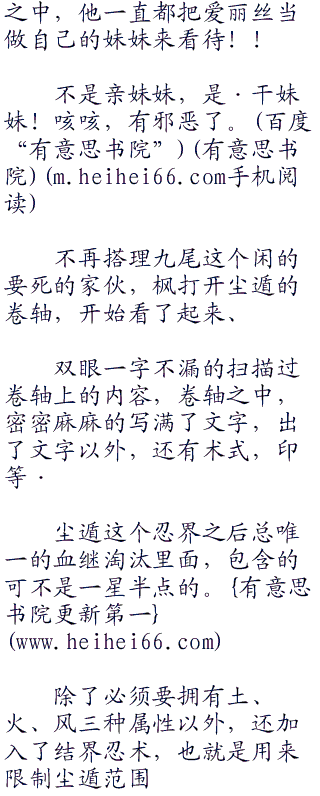 之中，他一直都把爱丽丝当
做自己的妹妹来看待！！
不是亲妹妹，是·干妹
妹！咳咳，有邪恶了。(百度
“有意思书院”)(有意思书
院)(m.heihei66.com手机阅
读)
不再搭理九尾这个闲的
要死的家伙，枫打开尘遁的
卷轴，开始看了起来、
双眼一字不漏的扫描过
卷轴上的内容，卷轴之中，
密密麻麻的写满了文字，出
了文字以外，还有术式，印
等·
尘遁这个忍界之后总唯
一的血继淘汰里面，包含的
可不是一星半点的。{有意思
书院更新第一}
(www.heihei66.com)
除了必须要拥有土、
火、风三种属性以外，还加
入了结界忍术，也就是用来
限制尘遁范围